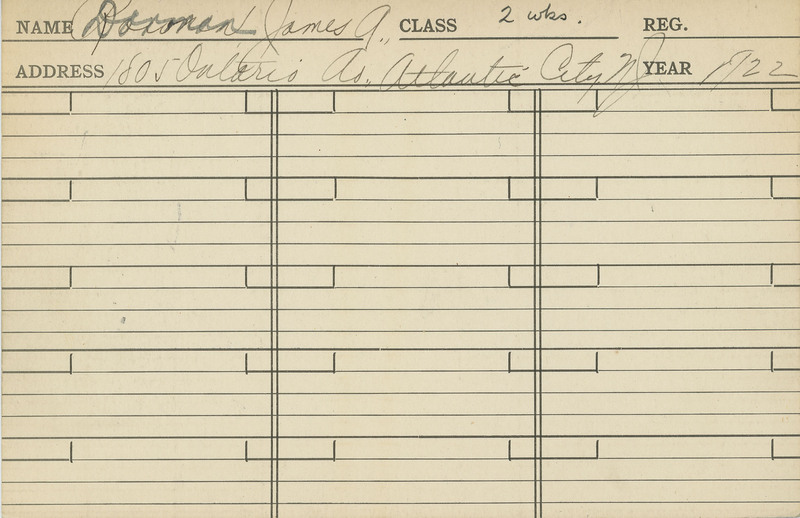 NAME Dorman James A., CLASS 2 wks. REG.
ADDRESS 1805 Ontario Av. Atlantic City NJ YEAR 1922